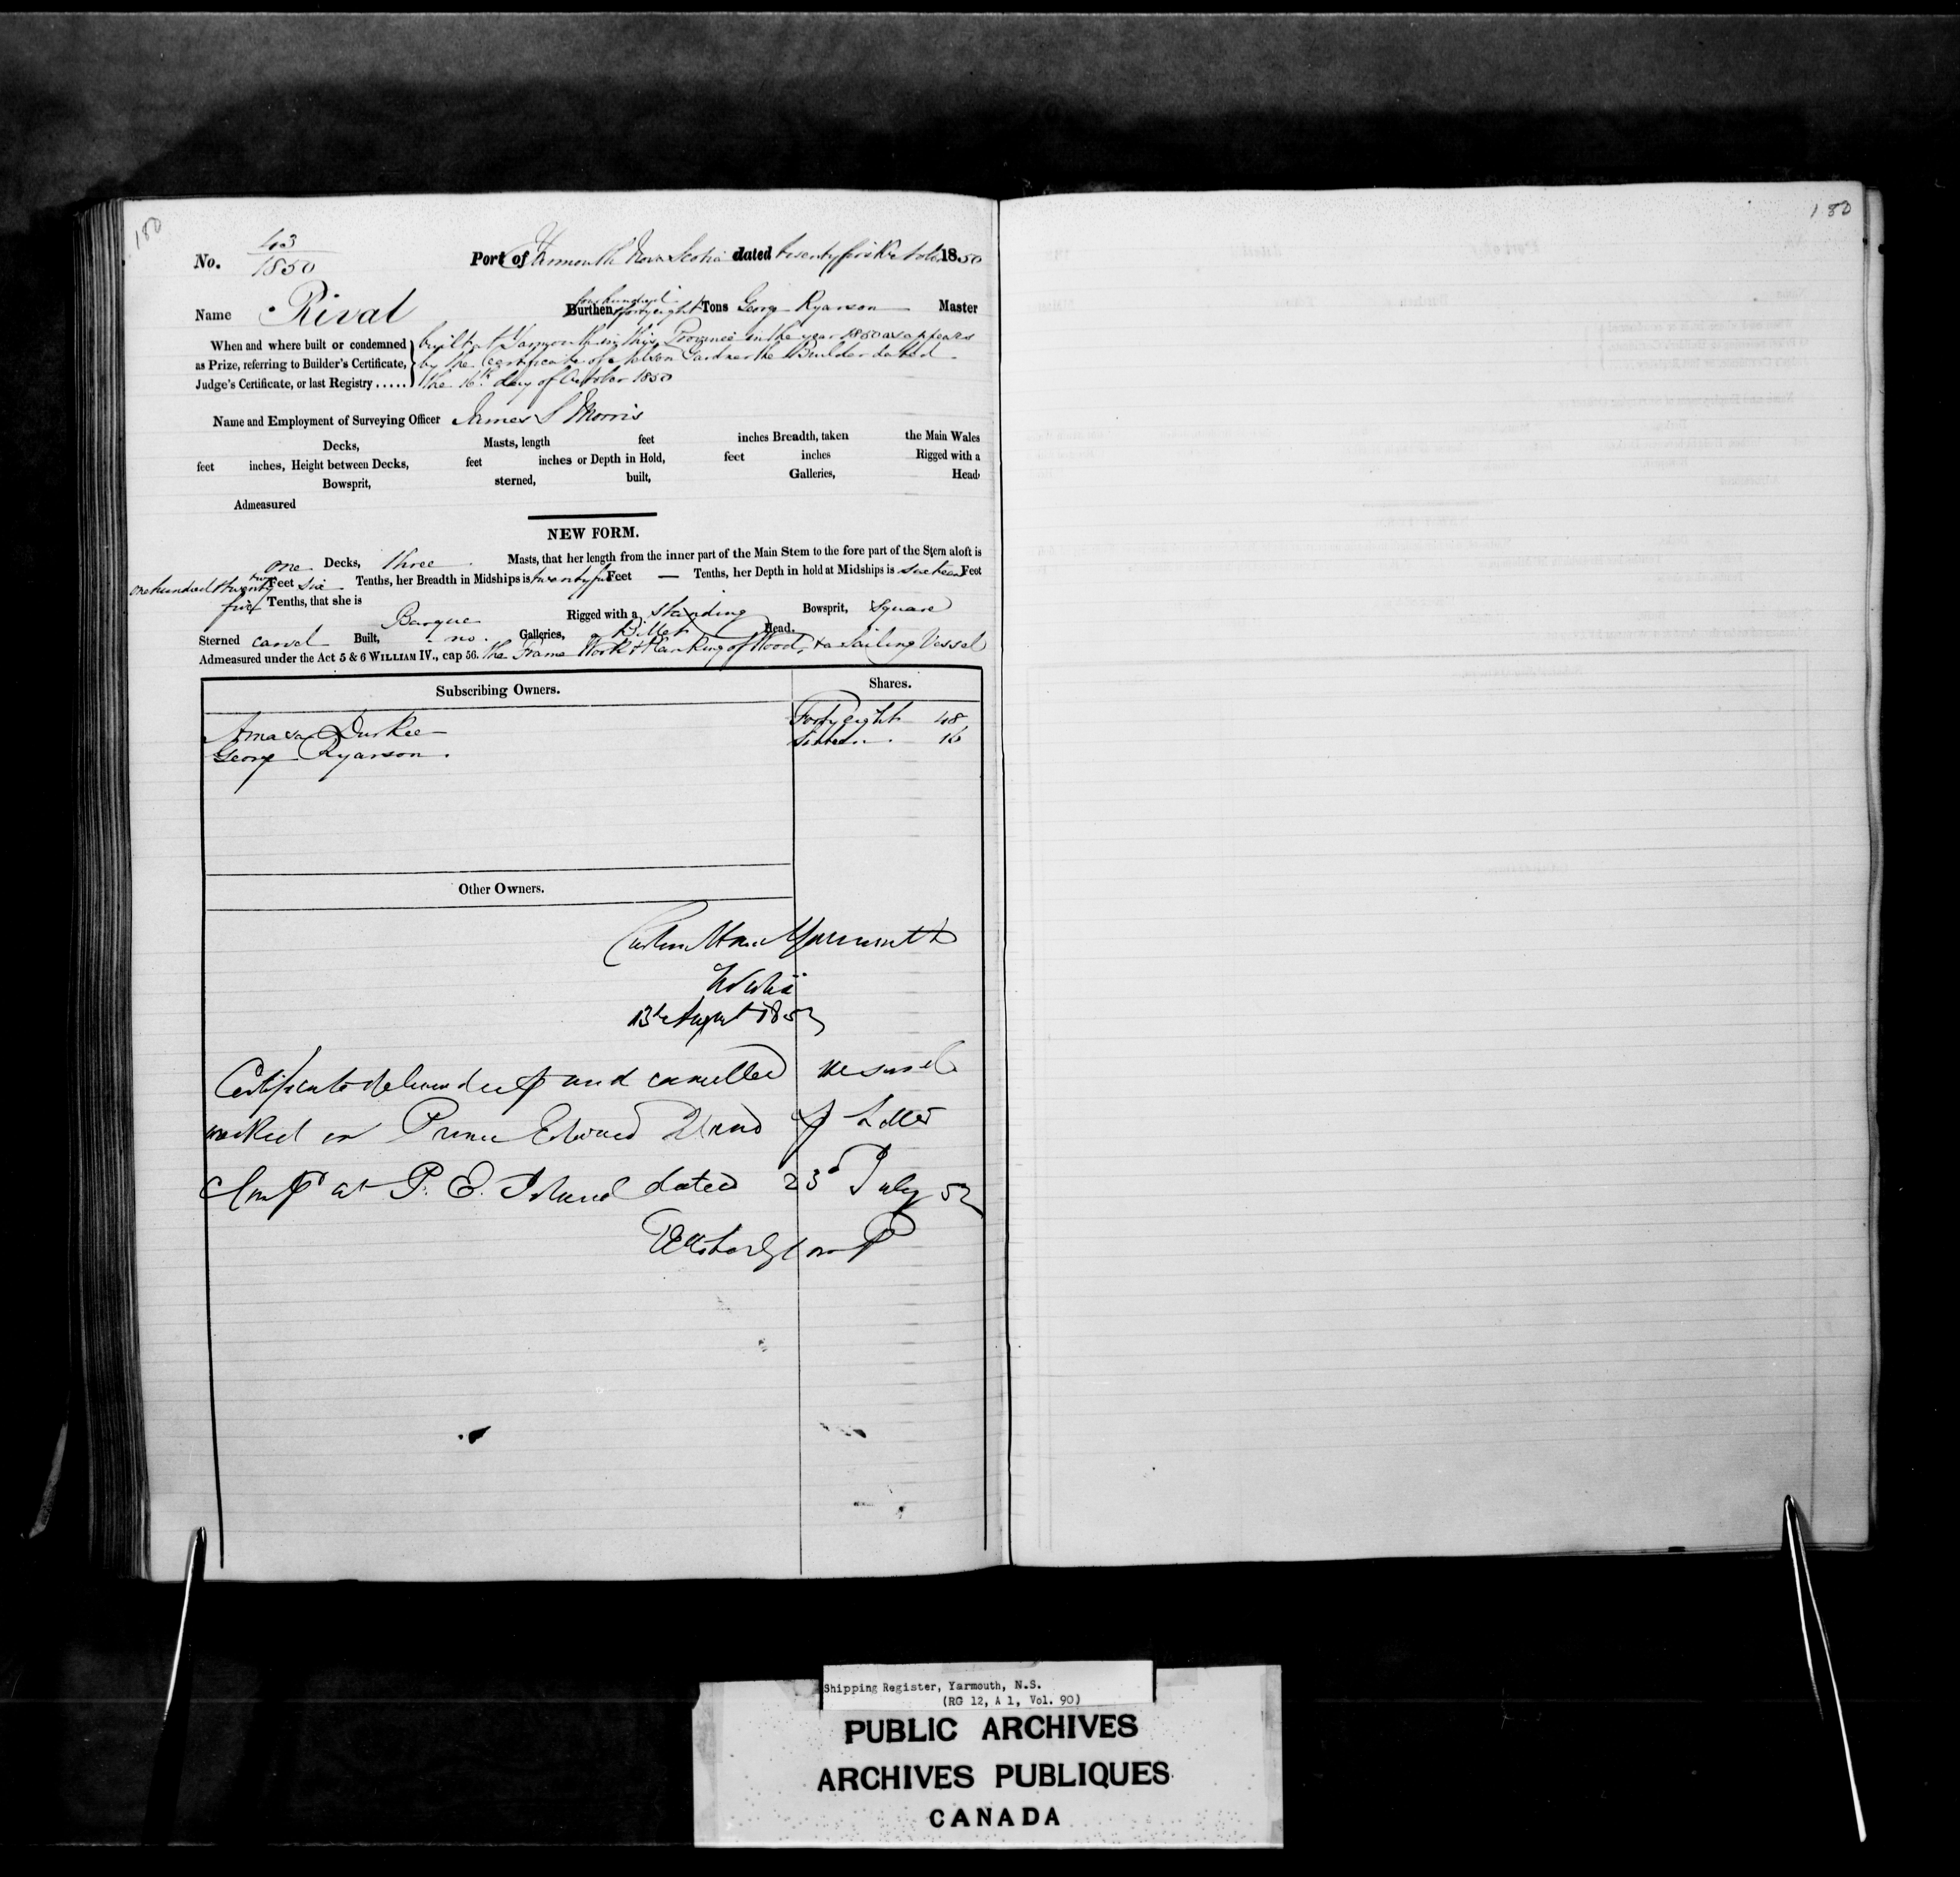 180
180
No. 43/1850 Port of Yarmouth Nova Scotia dated twenty first October 1850
Name Rival Burthen four hundred & forty eight Tons George Ryarson Master
When and where built or condemned built at Yarmouth in this Province in the year 1850 as appears
as Prize, referring to Builder's Certificate, by the Certificate of Nelson Gardner the Builder dated
Judge's Certificate, or last Registry ..... the 16th day of October 1850
Name and Employment of Surveying Officer James S Morris
Decks, Masts, length feet inches Breadth, taken the Main Wales
feet inches, Height between Decks, feet inches or Depth in Hold, feet inches Rigged with a
Bowsprit, sterned, built, Galleries, Head
Admeasured
NEW FORM.
one Decks, three Masts, that her length from the inner part of the Main Stem to the fore part of the Stern aloft is
one hundred & twenty two Feet six Tenths, her Breadth in Midships is twenty five Feet — Tenths, her Depth in hold at Midships is sixteen Feet
five Tenths, that she is Barque Rigged with a standing Bowsprit, Square
Sterned carvel Built, no Galleries, a Billet Head.
Admeasured under the Act 5 & 6 WILLIAM IV., cap 56. the Frame Work & Planking of Wood, & a Sailing Vessel
Subscribing Owners. Shares.
Amasa Durkee Forty eight 48
George Ryarson. Sixteen. 16
Other Owners.
Custom House Yarmouth
N Scotia
13th August 1852
Certificate delivered up and cancelled vessel
wrecked on Prince Edward Island p Letter
Compt at P. E. Island dated 23d July 52
Shipping Register, Yarmouth, N.S.
(RG 12, A 1, Vol. 90)
PUBLIC ARCHIVES
ARCHIVES PUBLIQUES
CANADA